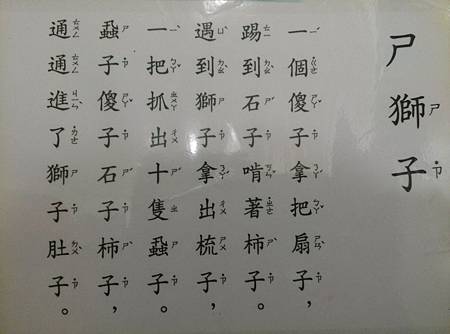 ㄕ 獅子
一個傻子拿把扇子，
踢到石子啃著柿子。
遇到獅子拿出梳子，
一把抓出十隻蝨子。
蝨子傻子石子柿子，
通通進了獅子肚子。